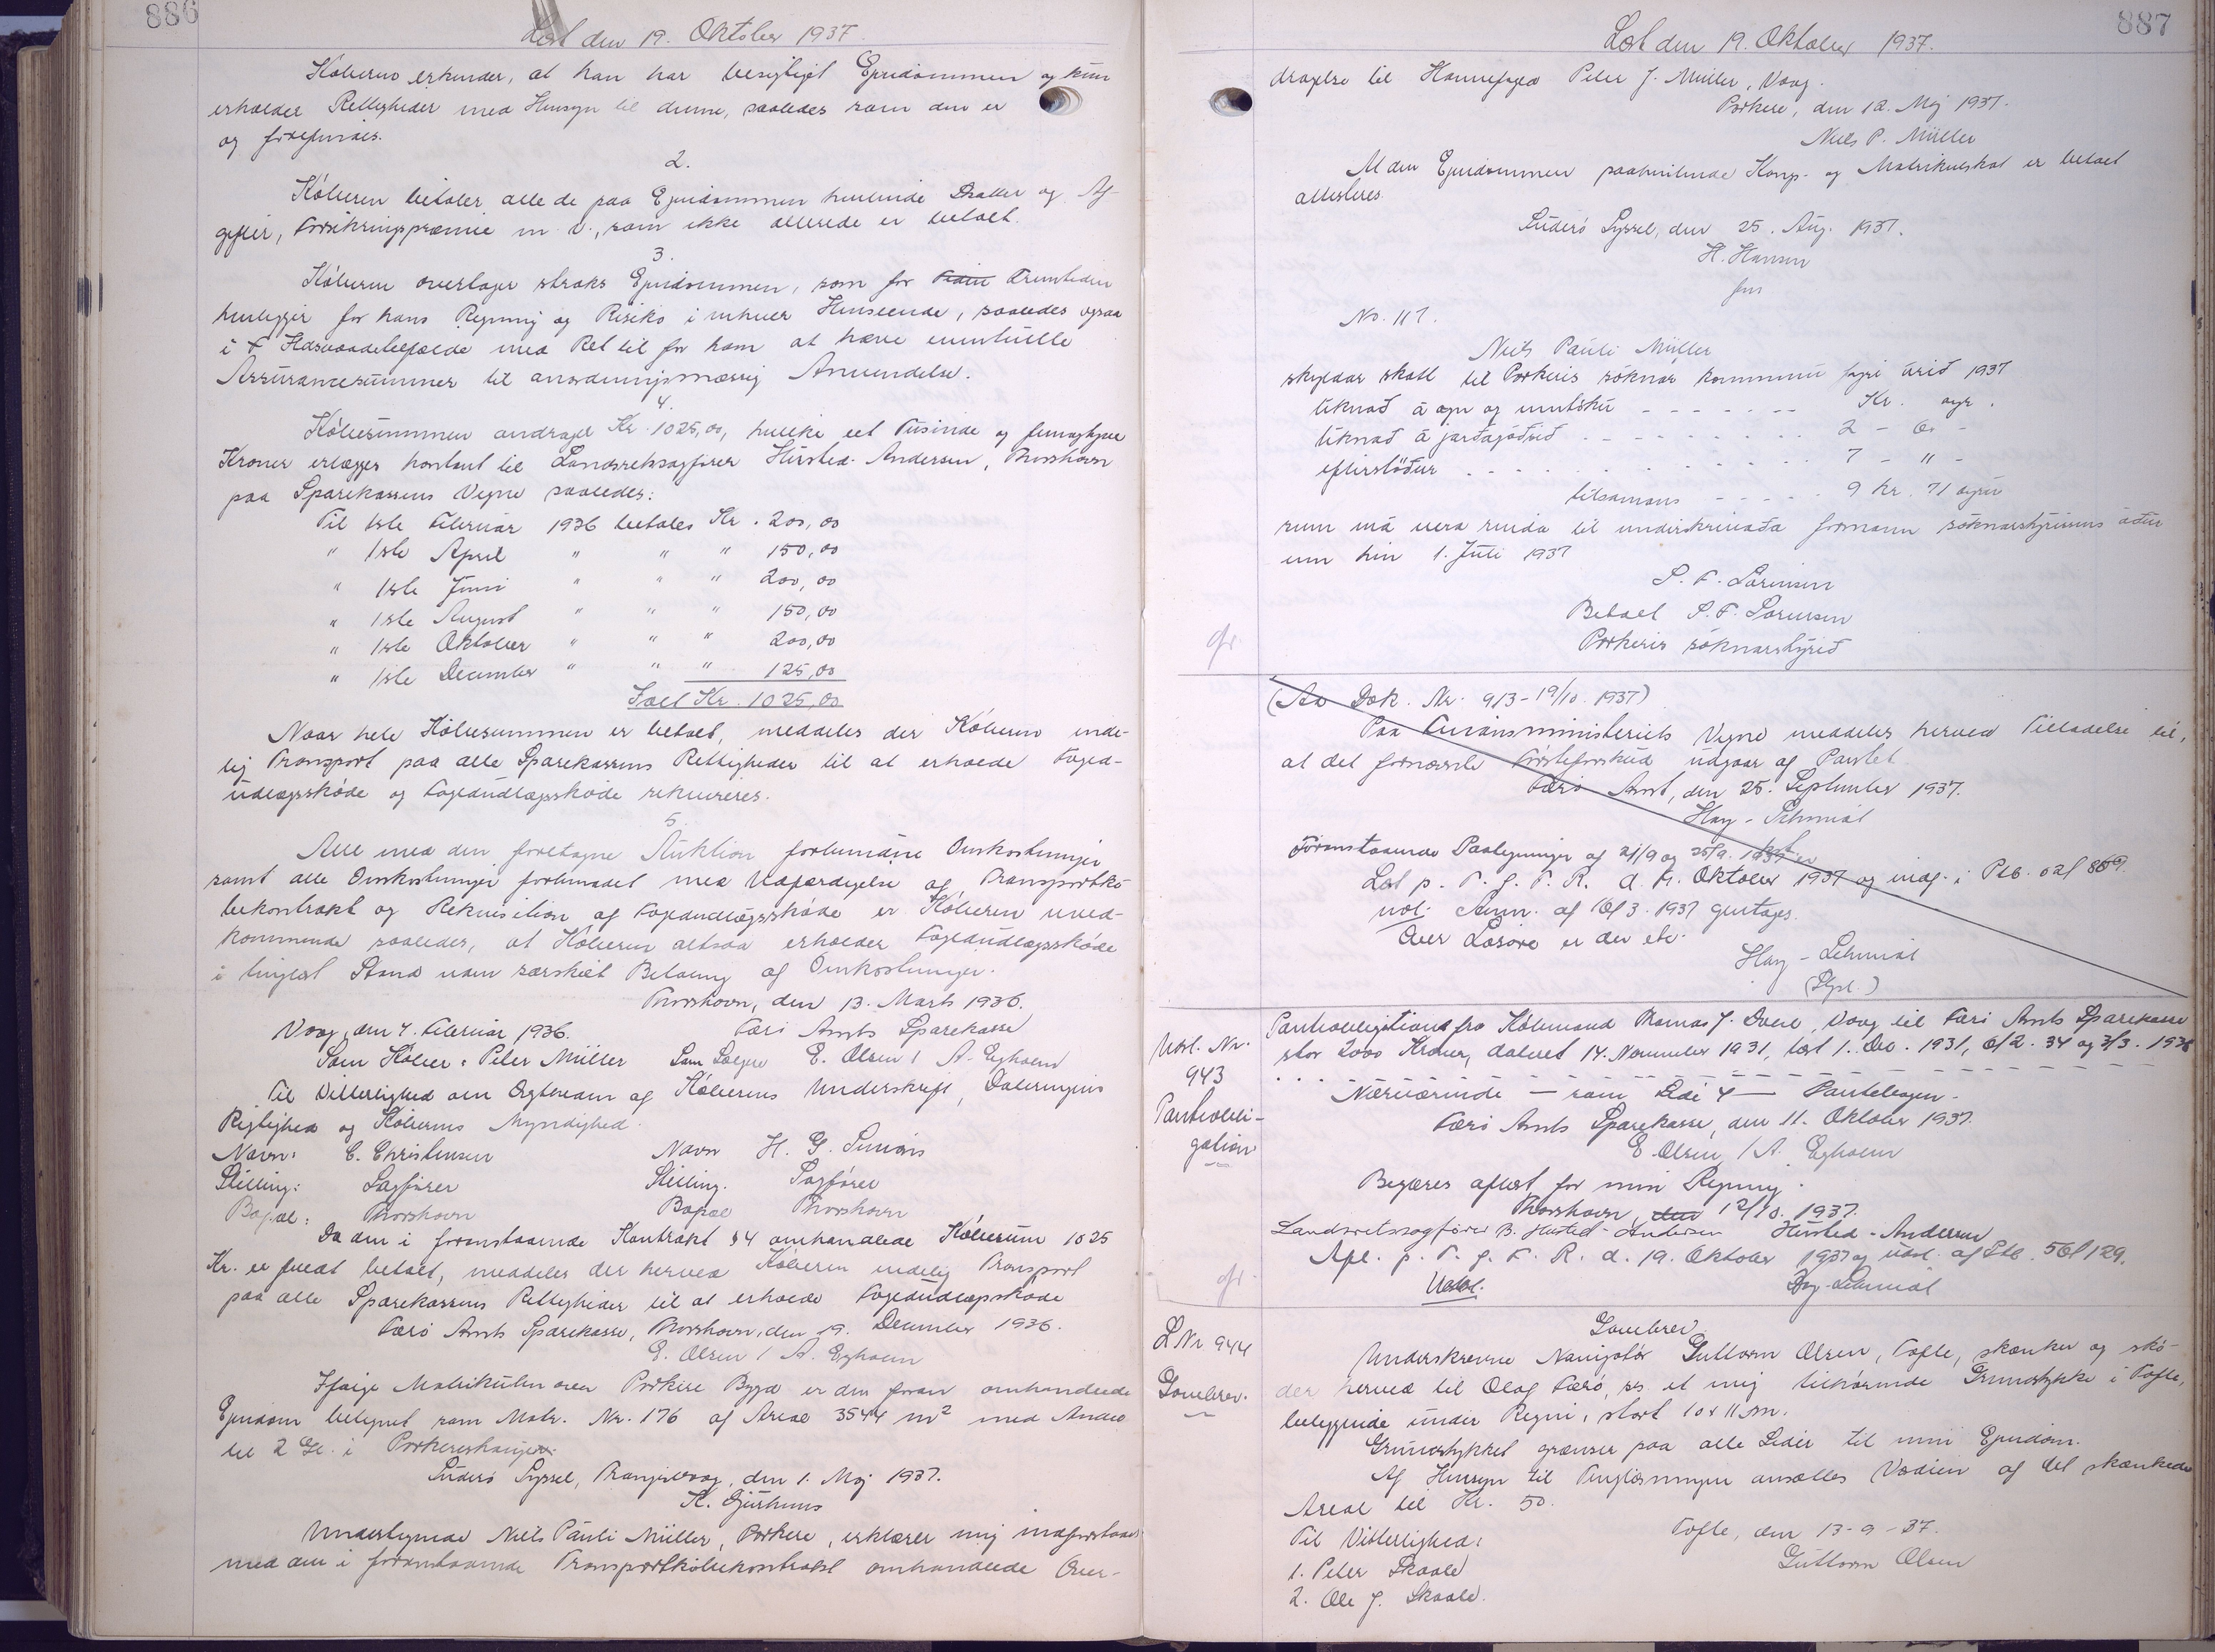 886
Læst den 19. Oktober 1937.
Køberen erkender, at han har besigtiget Ejendommen og kun
erholder Rettigheder med Hensyn til denne, saaledes som den er
og forefindes.
2.
Køberen betaler alle de paa Ejendommen hvilende Skatter og Af-
gifter, Forsikringspræmie m. v., som ikke allerede er betalt.
3.
Køberen overtager straks Ejendommen, som for Fremtiden
henligger for hans Regning og Risiko i enhver Henseende, saaledes ogsaa
i Ildsvaadetilfælde med Ret til for ham at hæve eventuelle
Assurancesummer til anordningsmæssig Anvendelse.
4.
Købesummen andrager Kr. 1025,00, hvilke eet Tusinde og femogtyve
Kroner erlægges kontant til Landsretssagfører Husted-Andersen, Thorshavn
paa Sparekassens Vegne saaledes:
Til 1ste Februar 1936 betales Kr. 200,00
" 1ste April " " " 150,00
" 1ste Juni " " " 200,00
" 1ste August " " " 150,00
" 1ste Oktober " " " 200,00
" 1ste December " " " 125,00
Ialt Kr. 1025,00
Naar hele Købesummen er betalt, meddeles der Køberen ende-
lig Transport paa alle Sparekassens Rettigheder til at erholde Foged-
udlægsskøde og Fogedudlægsskøde rekvireres.
5.
Alle med den foretagne Auktion forbundne Omkostninger
samt alle Omkostninger forbundet med Udfærdigelse af Transportkø-
bekontrakt og Rekvisition af Fogedudlægsskøde er Køberen uved-
kommende saaledes, at Køberen altsaa erholder Fogedudlægsskøde
i tinglæst Stand uden særskilt Betaling af Omkostninger.
Thorshavn, den 13. Marts 1936.
Vaag, den 7. Februar 1936. Færø Amts Sparekasse
Som Køber: Peter Müller Som Sælger E. Olsen / A. Egholm
Til Vitterlighed om Ægtheden af Køberens Underskrift, Dateringens
Rigtighed og Køberens Myndighed.
Navn: C. Christensen Navn H. G. Simonis
Stilling: Sagfører Stilling. Sagfører
Bopæl: Thorshavn Bopæl Thorshavn
Da den i foranstaaende Kontrakt § 4 omhandlede Købesum 1025
Kr. er fuldt betalt, meddeles der herved Køberen endelig Transport
paa alle Sparekassens Rettigheder til at erholde Fogedudlægsskøde
Færø Amts Sparekasse, Thorshavn, den 19. December 1936.
E. Olsen / A. Egholm
Ifølge Matrikulen over Porkere Bygd er den foran omhandlede
Ejendom betegnet som Matr. Nr. 176 af Areal 3544 m² med Andel
til 2 Gl. i Porkereshaugen.
Suderø Syssel, Trangisvaag, den 1. Maj 1937.
Undertegnede Niels Pauli Müller, Porkere, erklærer mig indforstaaet
med den i foranstaaende Transportkøbekontrakt omhandlede Over-
887
Læst den 19. Oktober 1937.
dragelse til Peter J. Müller, Vaag.
Porkere, den 12. Maj 1937.
Niels P. Müller
At den Ejendommen paahvilende Kong- og Matrikulskat er betalt
attesteres.
Suderø Syssel, den 25. Aug. 1937.
H. Hansen
fm
No. 117.
Niels Pauli Müller
skyldar skatt til Porkeris sóknar kommunu fyri árið 1937
líknað á ogn og inntøku - - - - - - Kr. oyr.
líknað á jarðagóðsið - - - - - - - - - 2 - 60 -
eftirstøður - - - - - - - - - - - - 7 - 11 -
tilsamans - - - - - 9 kr. 71 oyru
sum má vera rinda til undirskrivaða formann sóknarstýrisins áðrenn
um hin 1. Juli 1937
S. F. Sørensen
Betalt S. F. Sørensen
Porkeris sóknarstýrið
(Ad Dok. Nr. 913 - 19/10. 1937)
Paa Finansministeriets Vegne meddeles herved Tilladelse til,
at det fornævnte udgaar af Pantet.
Færø Amt, den 25. September 1937.
Hay-Schmidt
Foranstaaende Paategninger af 21/9 og 25/9. 1937 er
Læst p. T. f. F. R. d. 19. Oktober 1937 og indf. i Ptb.
Hay-Schmidt
Udsl. Nr.
943
Pantobli-
gation
Pantobligation fra Købmand Thomas J. Dahl, Vaag til Færø Amts Sparekasse
stor 2000 Kroner, dateret 14. November 1931, læst 1. Dec. 1931, 6/2. 34 og 3/3. 1936
Nærværende — som — Pantebogen.
Færø Amts Sparekasse, den 11. Oktober 1937.
E. Olsen / A. Egholm
Begæres aflæst for min Regning.
Thorshavn, den 12/10. 1937.
Landsretssagfører B. Husted-Andersen Husted-Andersen
Afl. p. T. f. F. R. d. 19. Oktober 1937 og udsl. af Ptb. 56/129.
Udsl. Hay-Schmidt
L Nr. 944
Gavebrev.
Gavebrev
Underskrevne Navigatør Guttorm Olsen, Tofte, skænker og skø-
der herved til Olaf Færø, ss. et mig tilhørende Grundstykke i Tofte,
beliggende under Regni, stort 10 x 11 m.
Grundstykket grænser paa alle Sider til min Ejendom.
Af Hensyn til Tinglæsningen ansættes Værdien af det skænkede
Areal til Kr. 50.
Til Vitterlighed: Tofte, den 13-9-37.
1. Peter Skaale Guttorm Olsen
2. Ole J. Skaale.